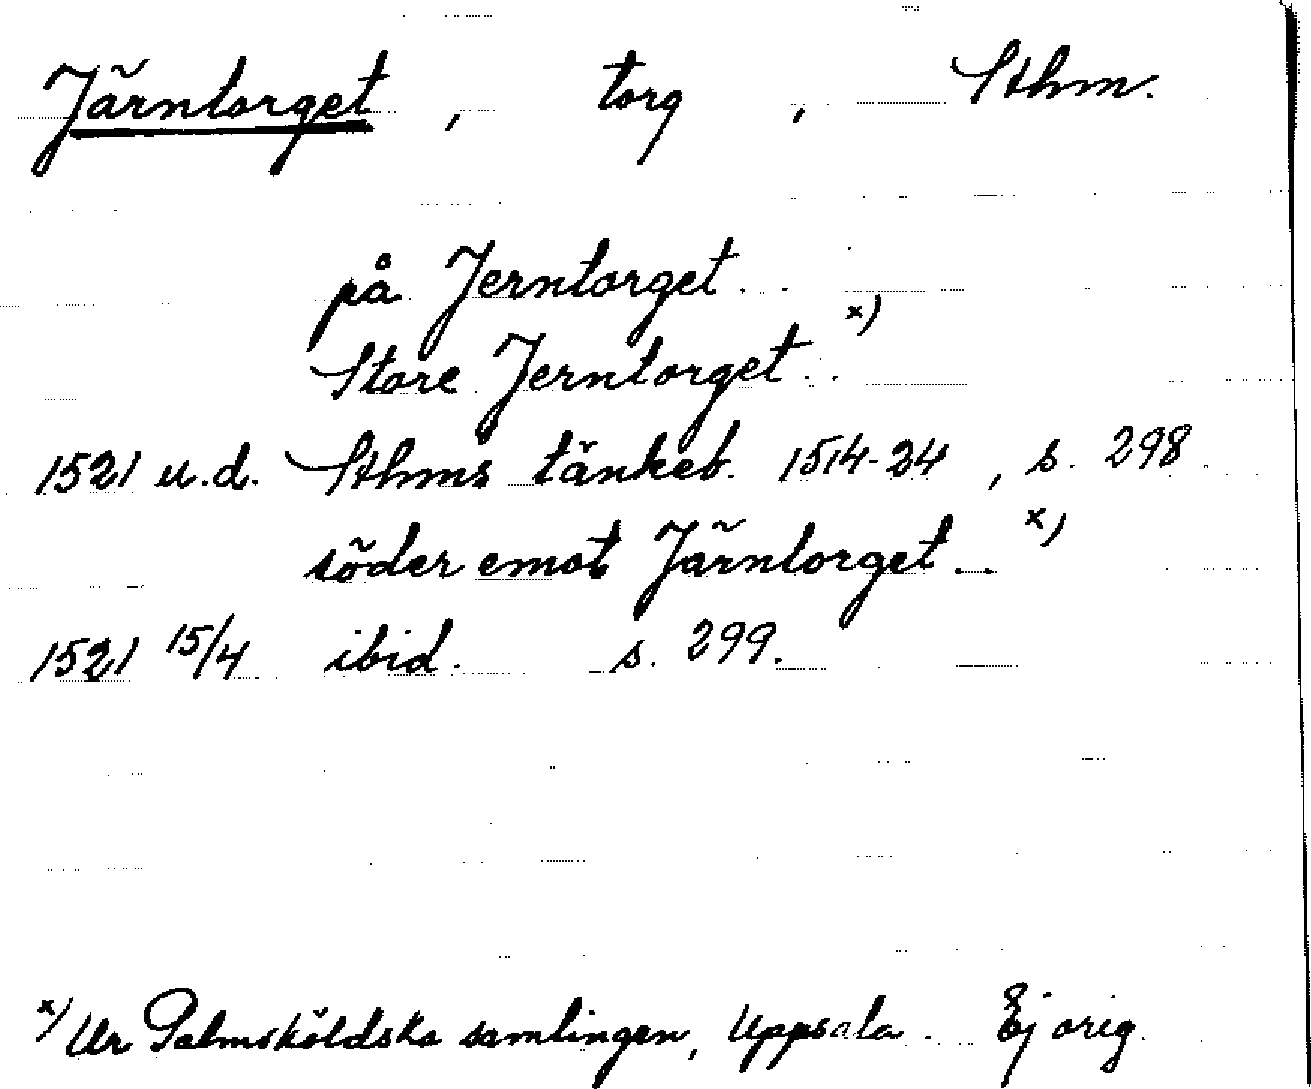 Järntorget, torg, Sthm.
på Jerntorget..
Store Jerntorget.. x)
1521 u.d. Sthms tänkeb. 1514-24, s. 298
söder emot Järntorget.. x)
1521 15/4 ibid. s. 299.
x) Ur Palmsköldska samlingen, Uppsala. Ej orig.